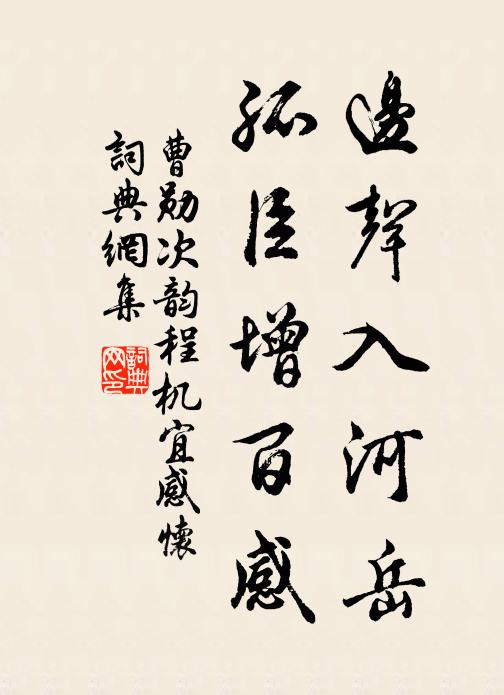 邊聲入河岳
孤臣增百感
曹勛次韵程机宜感懷
詞典網集
詞典网印